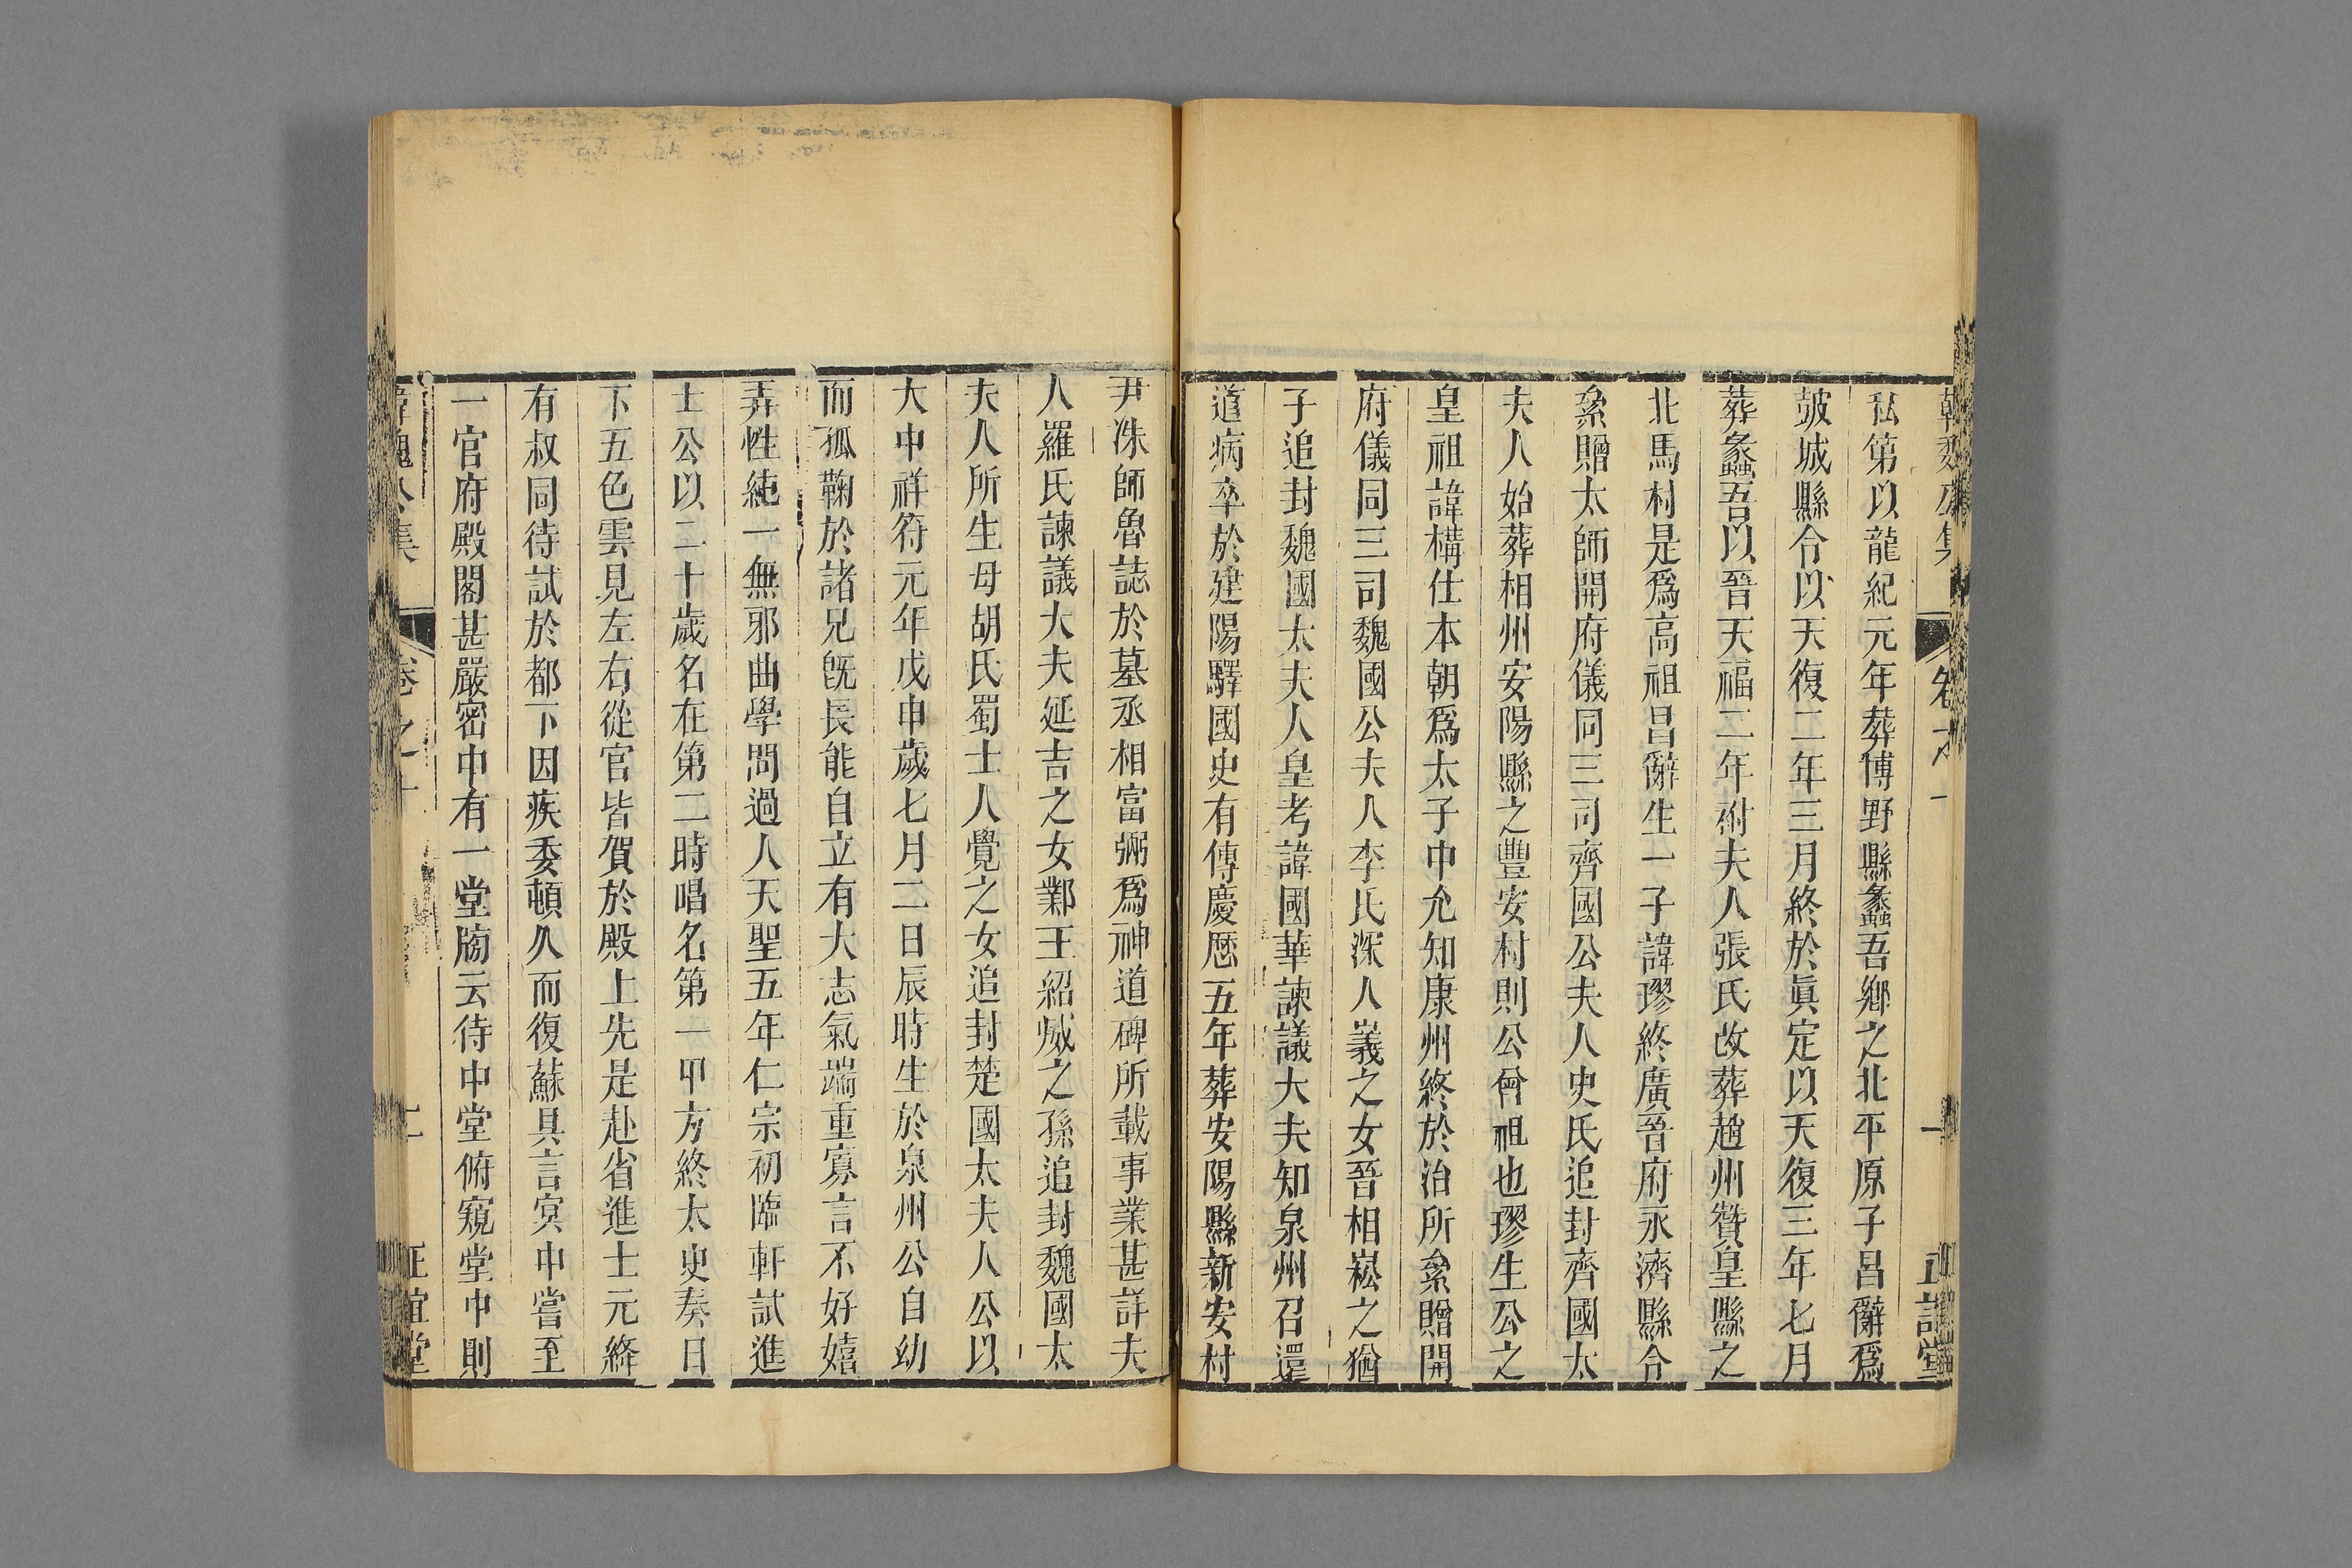 私第以龍紀元年葬博野縣蠡吾鄉之北平原子昌辭爲
皷城縣令以天復二年三月終於眞定以天復三年七月
葬蠡吾以晉天福二年祔夫人張氏改葬趙州贊皇縣之
北馬村是爲高祖昌辭生一子諱璆終廣晉府永濟縣令
絫贈太師開府儀同三司齊國公夫人史氏追封齊國太
夫人始葬相州安陽縣之豐安村則公曾祖也璆生公之
皇祖諱構仕本朝爲太子中允知康州終於治所絫贈開
府儀同三司魏國公夫人李氏深人嶬之女晉相崧之猶
子追封魏國太夫人皇考諱國華諫議大夫知泉州召還
道病卒於建陽驛國史有傳慶歷五年葬安陽縣新安村
尹洙師魯誌於墓丞相富弼爲神道碑所載事業甚詳夫
人羅氏諫議大夫延吉之女鄴王紹威之孫追封魏國太
夫人所生母胡氏蜀士人覺之女追封楚國太夫人公以
大中祥符元年戊申歲七月二日辰時生於泉州公自幼
而孤鞠於諸兄旣長能自立有大志氣端重寡言不好嬉
弄性純一無邪曲學問過人天聖五年仁宗初臨軒試進
士公以二十歲名在第二時唱名第一甲方終太史奏日
下五色雲見左右從官皆賀於殿上先是赴省進士元絳
有叔同待試於都下因疾委頓久而復蘇具言冥中嘗至
一官府殿閣甚嚴密中有一堂牓云侍中堂俯窺堂中則